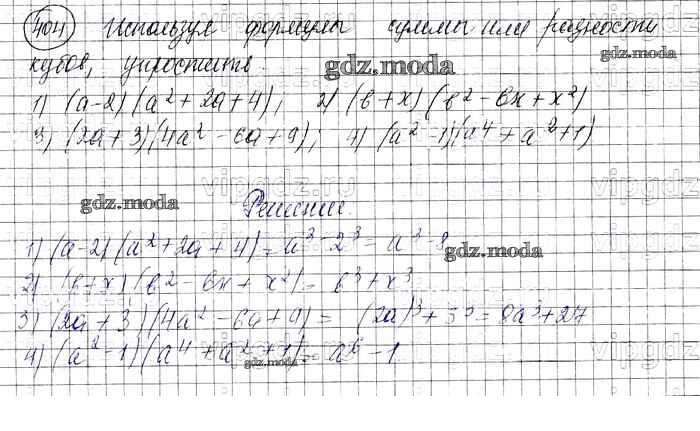 404 Используя формулы суммы или разности
кубов, упростите
gdz.moda
gdz.moda
1) (a-2)(a²+2a+4); 2) (b+x)(b²-bx+x²)
3) (2a+3)(4a²-6a+9); 4) (a²-1)(a⁴+a²+1)
vipgdz.ru
vipgdz
gdz.moda
Решение.
1) (a-2)(a²+2a+4)=a³-2³=a³-8
gdz.moda
2) (b+x)(b²-bx+x²)=b³+x³
3) (2a+3)(4a²-6a+9)=(2a)³+3³=8a³+27
4) (a²-1)(a⁴+a²+1)=a⁶-1
gdz.moda